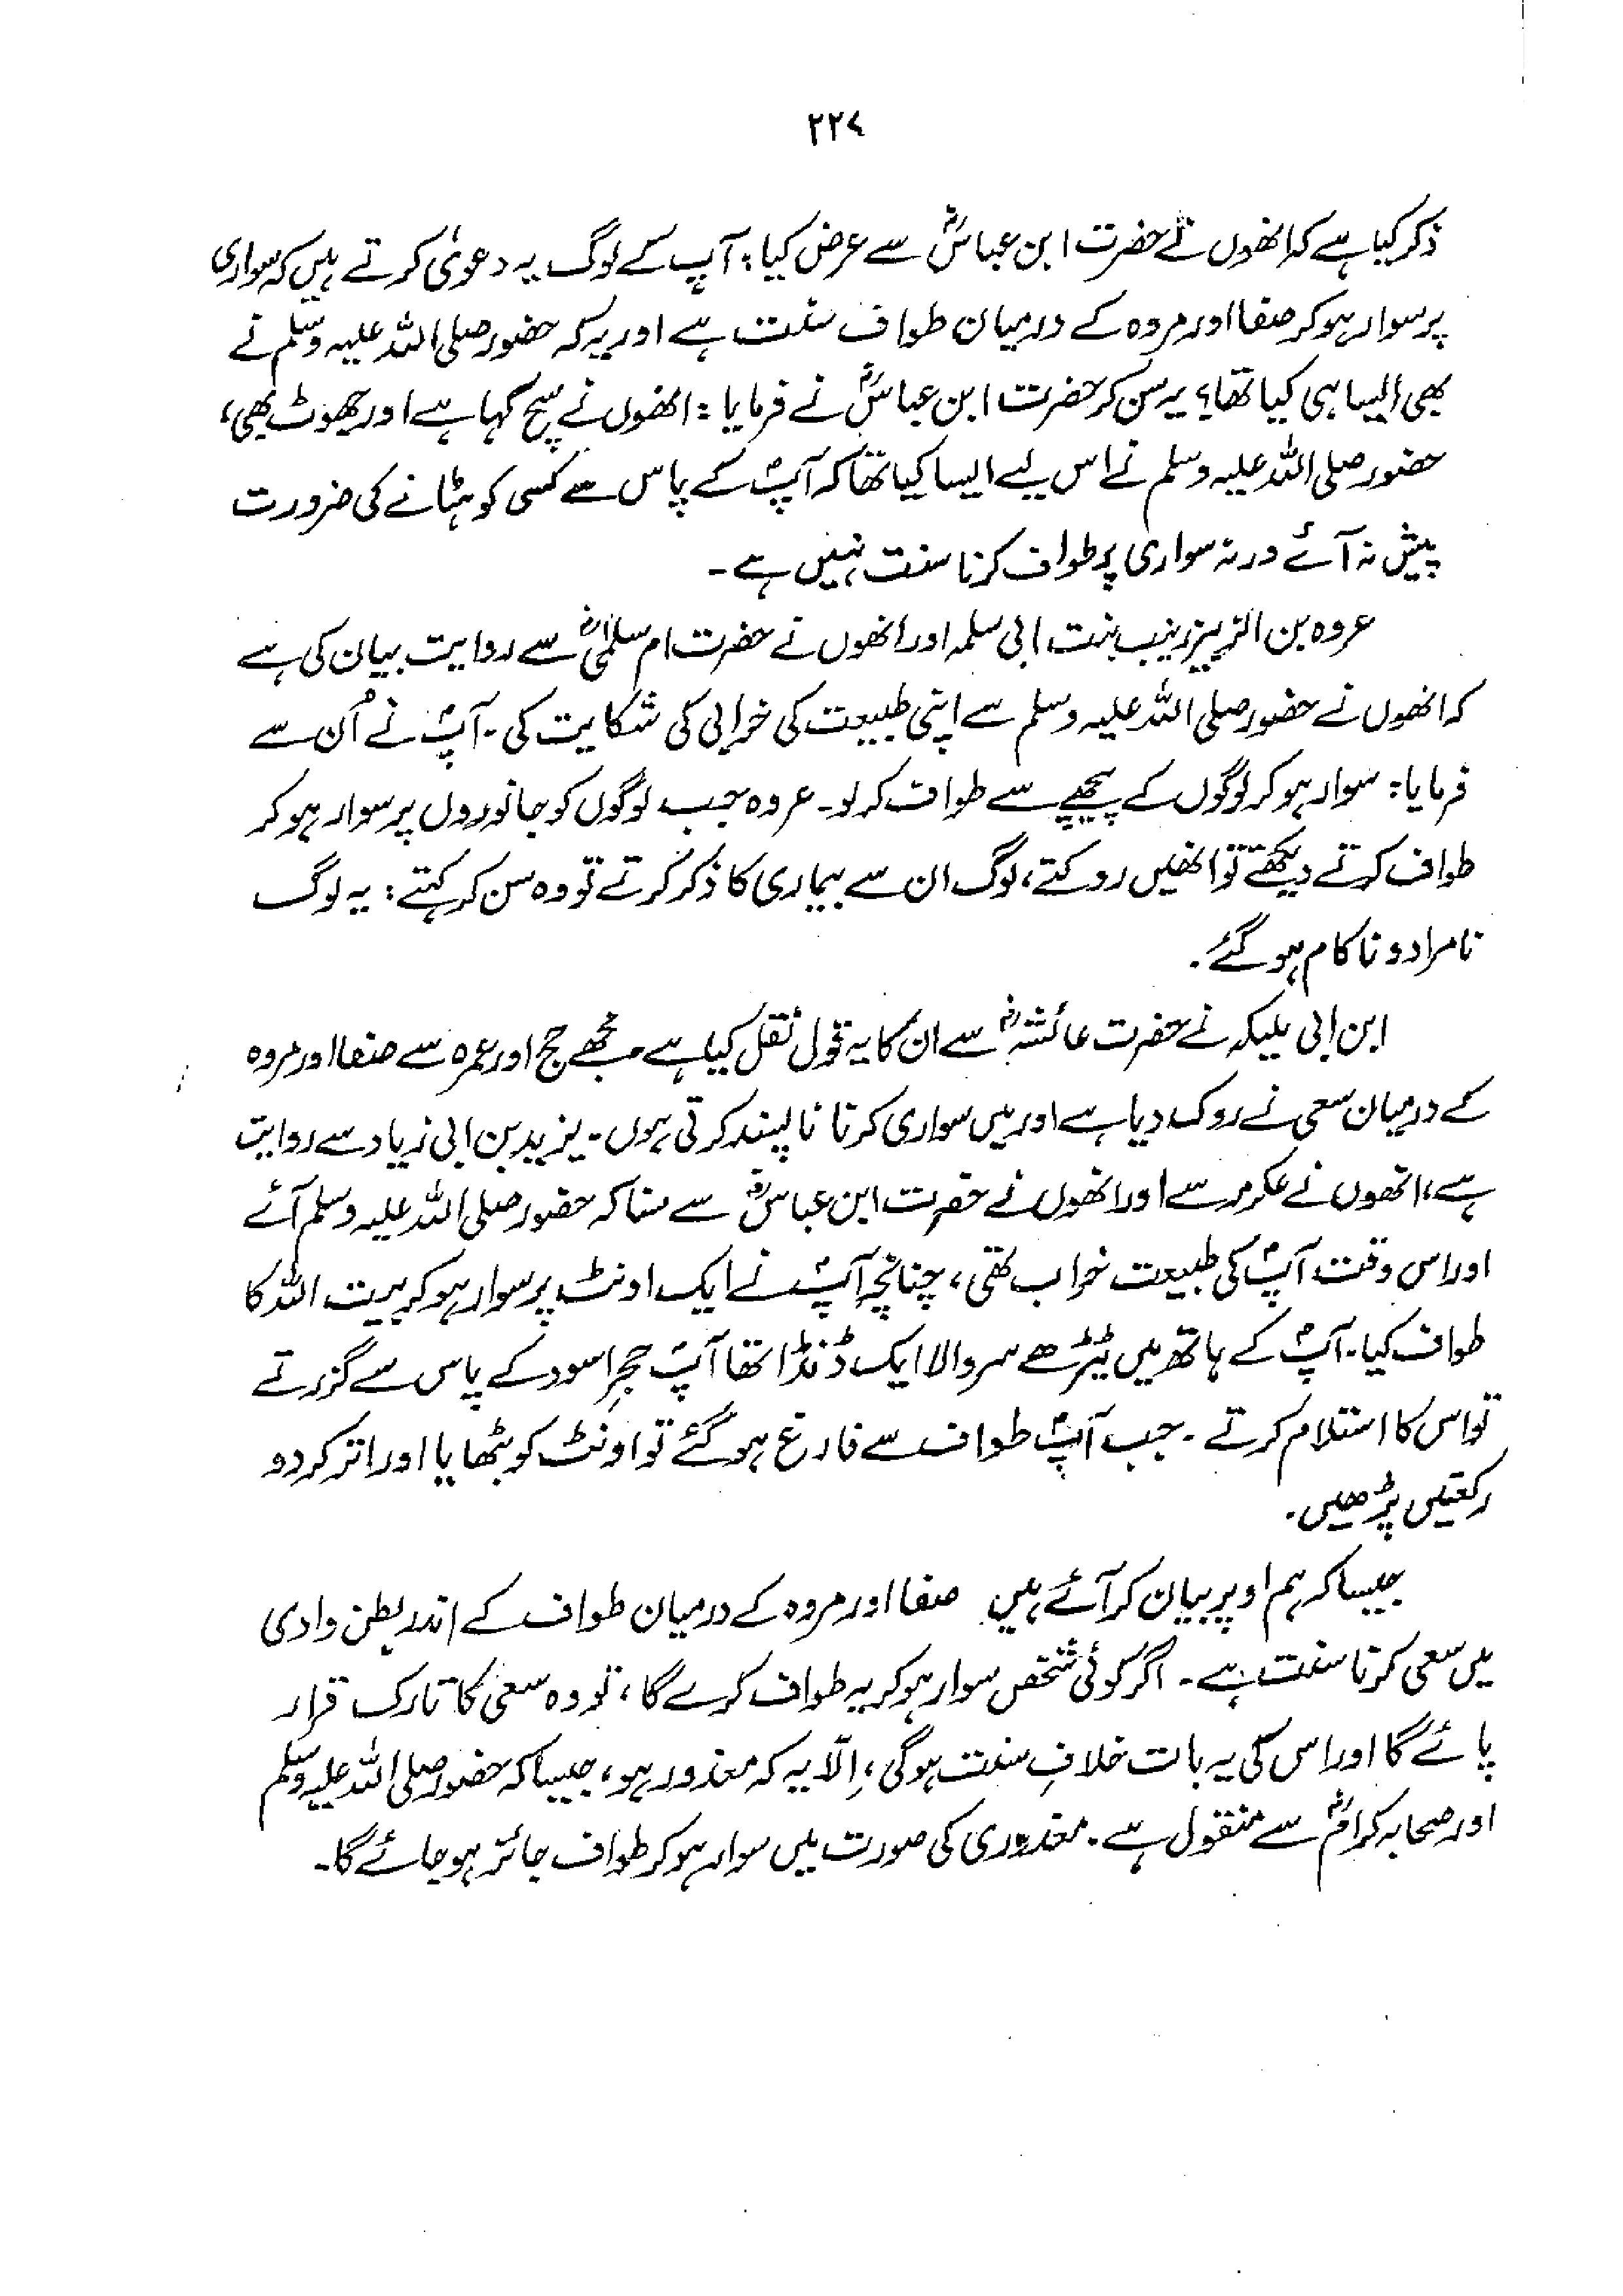 ۲۲۷
ذکر کیا ہے کہ انھوں نے حضرت ابن عباسؓ سے عرض کیا: آپ کے لوگ یہ دعویٰ کرتے ہیں کہ سواری
پر سوار ہو کر صفا اور مروہ کے درمیان طواف سنت ہے اور یہ کہ حضور صلی اللہ علیہ وسلم نے
بھی ایسا ہی کیا تھا؛ یہ سن کر حضرت ابن عباسؓ نے فرمایا: انھوں نے سچ کہا ہے اور جھوٹ بھی،
حضور صلی اللہ علیہ وسلم نے اس لیے ایسا کیا تھا کہ آپؐ کے پاس سے کسی کو ہٹانے کی ضرورت
پیش نہ آئے ورنہ سواری پر طواف کرنا سنت نہیں ہے۔
عروہ بن الزبیر زینب بنت ابی سلمہ اور انھوں نے حضرت ام سلمیٰؓ سے روایت بیان کی ہے
کہ انھوں نے حضور صلی اللہ علیہ وسلم سے اپنی طبیعت کی خرابی کی شکایت کی۔ آپؐ نے اُن سے
فرمایا: سوار ہو کر لوگوں کے پیچھے سے طواف کر لو۔ عروہ جب لوگوں کو جانوروں پر سوار ہو کر
طواف کرتے دیکھتے تو انھیں روکتے، لوگ ان سے بیماری کا ذکر کرتے تو وہ سن کر کہتے: یہ لوگ
نامراد و ناکام ہو گئے۔
ابن ابی بلیکہ نے حضرت عائشہؓ سے ان کا یہ قول نقل کیا ہے مجھے حج اور عمرہ سے صفا اور مروہ
کے درمیان سعی نے روک دیا ہے اور میں سواری کرنا ناپسند کرتی ہوں۔ یزید بن ابی زیاد سے روایت
ہے، انھوں نے عکرمہ سے اور انھوں نے حضرت ابن عباسؓ سے سنا کہ حضور صلی اللہ علیہ وسلم آئے
اور اس وقت آپؐ کی طبیعت خراب تھی، چنانچہ آپؐ نے ایک اونٹ پر سوار ہو کر بیت اللہ کا
طواف کیا۔ آپؐ کے ہاتھ میں ٹیڑھے سر والا ایک ڈنڈا تھا آپؐ حجرِ اسود کے پاس سے گزرتے
تو اس کا استلام کرتے۔ جب آپؐ طواف سے فارغ ہو گئے تو اونٹ کو بٹھایا اور اتر کر دو
رکعتیں پڑھیں۔
جیسا کہ ہم اوپر بیان کر آئے ہیں صفا اور مروہ کے درمیان طواف کے اندر بطن وادی
میں سعی کرنا سنت ہے۔ اگر کوئی شخص سوار ہو کر یہ طواف کرے گا، تو وہ سعی کا تارک قرار
پائے گا اور اس کی یہ بات خلافِ سنت ہو گی، اِلّا یہ کہ معذور ہو، جیسا کہ حضور صلی اللہ علیہ وسلم
اور صحابہ کرامؓ سے منقول ہے۔ معذوری کی صورت میں سوار ہو کر طواف جائز ہو جائے گا۔